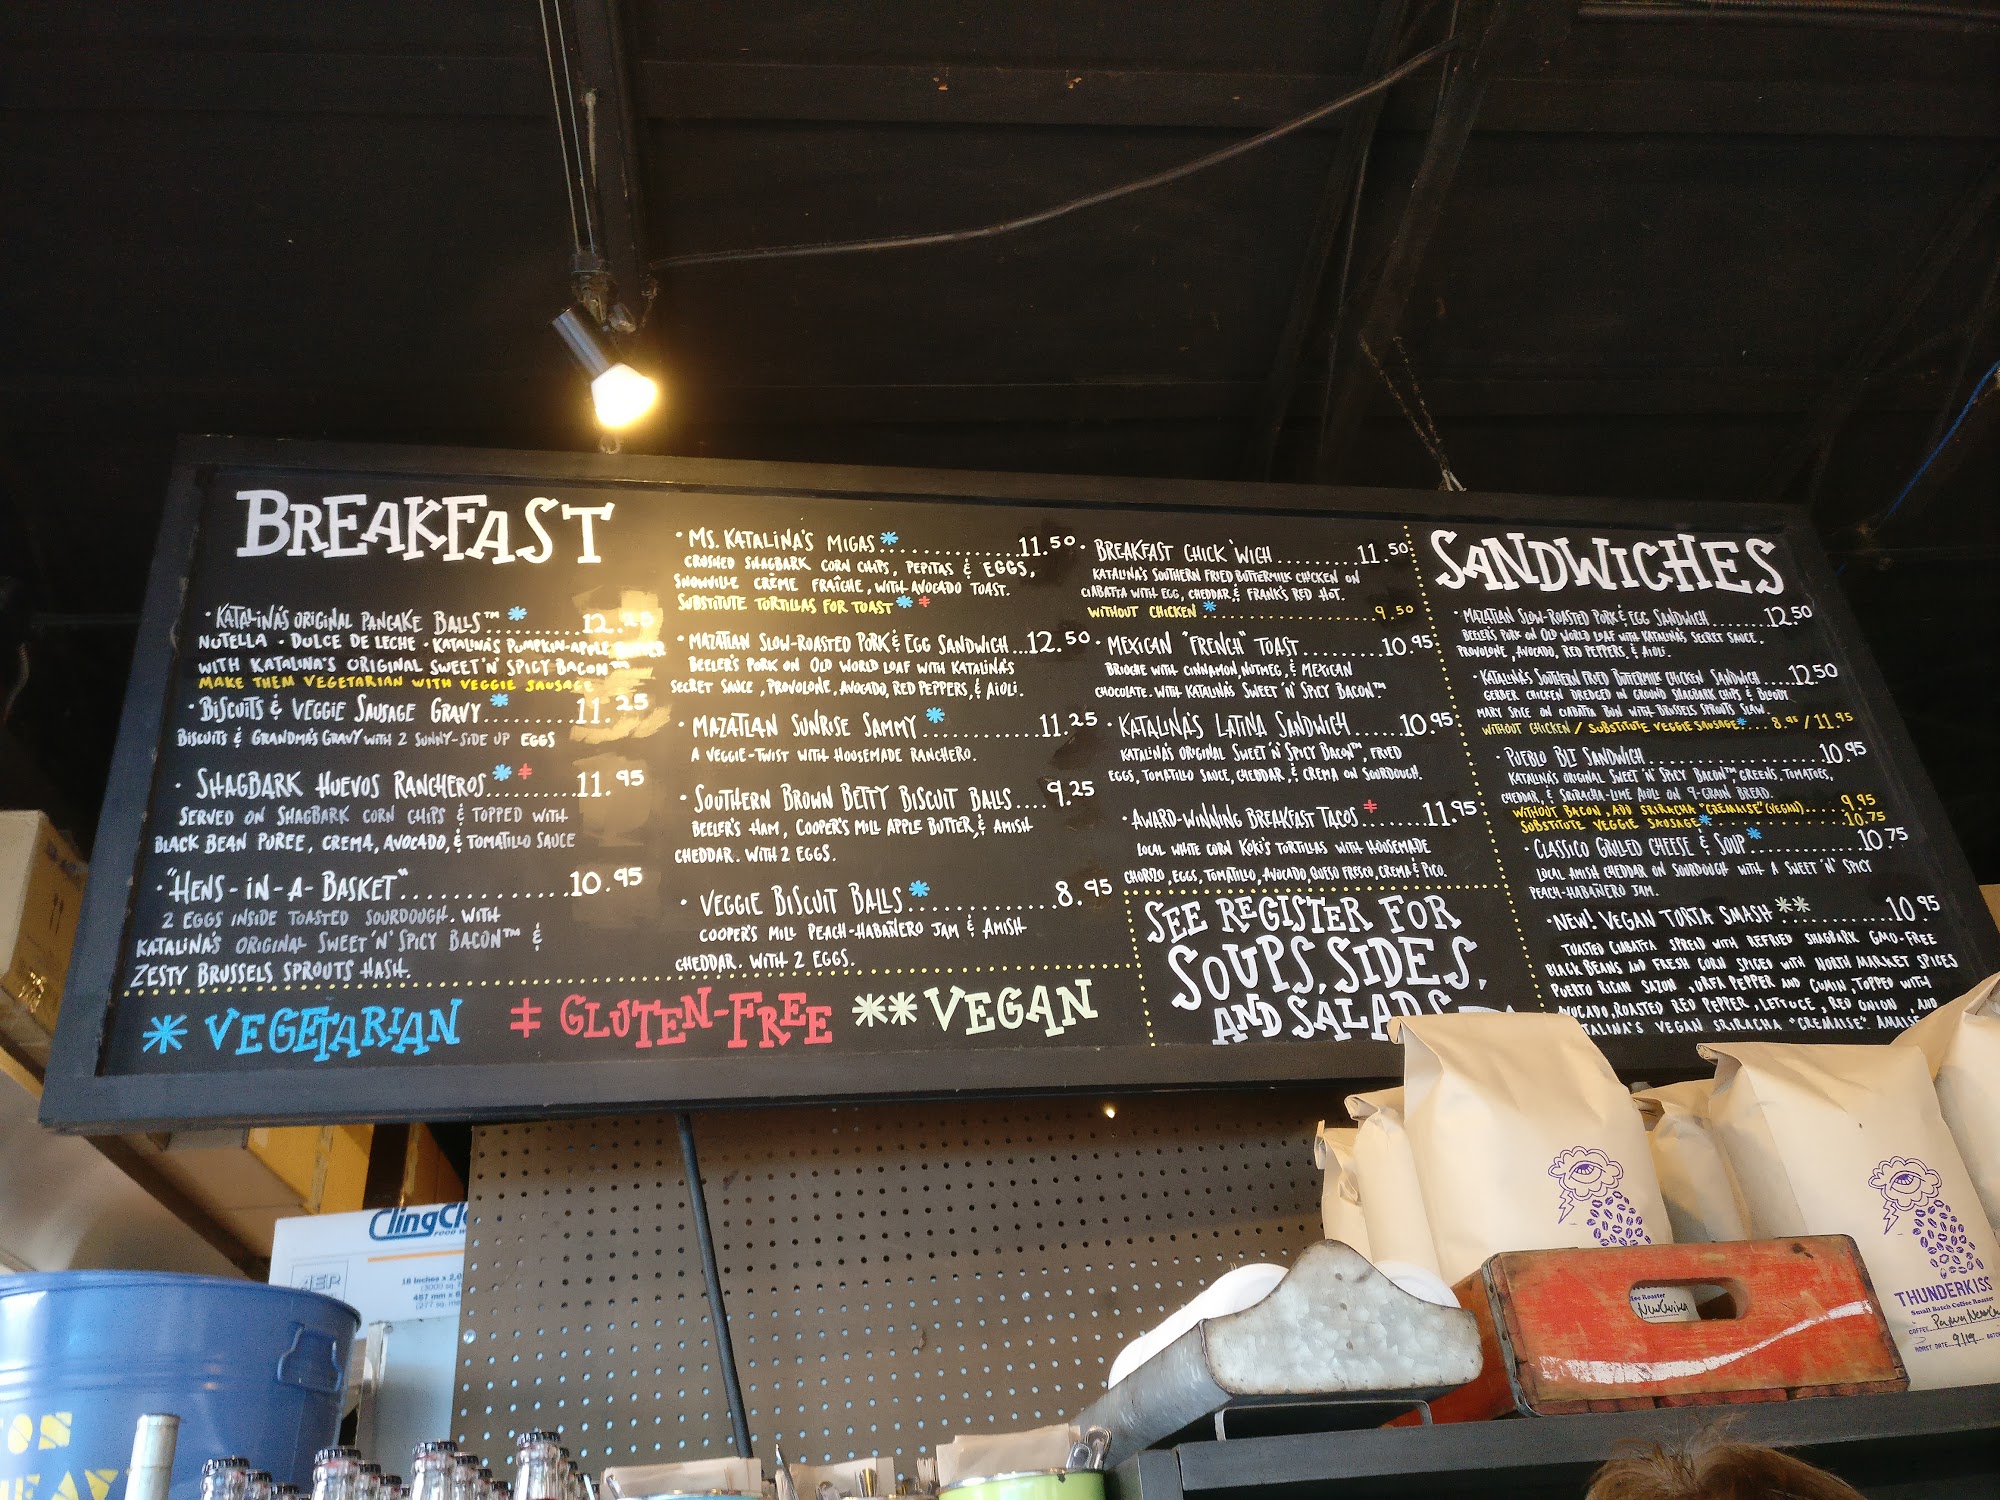 BREAKFAST
• KATALINA'S ORIGINAL PANCAKE BALLS™ *
NUTELLA • DULCE DE LECHE • KATALINA'S PUMPKIN-APPLE BUTTER
WITH KATALINA'S ORIGINAL SWEET 'N' SPICY BACON™
MAKE THEM VEGETARIAN WITH VEGGIE SAUSAGE
• BISCUITS & VEGGIE SAUSAGE GRAVY * ......... 11.25
BISCUITS & GRANDMA'S GRAVY WITH 2 SUNNY-SIDE UP EGGS
• SHAGBARK HUEVOS RANCHEROS * ‡ ...... 11.95
SERVED ON SHAGBARK CORN CHIPS & TOPPED WITH
BLACK BEAN PUREE, CREMA, AVOCADO, & TOMATILLO SAUCE
• "HENS-IN-A-BASKET" ............. 10.95
2 EGGS INSIDE TOASTED SOURDOUGH. WITH
KATALINA'S ORIGINAL SWEET 'N' SPICY BACON™ &
ZESTY BRUSSELS SPROUTS HASH.
• MS. KATALINA'S MIGAS * ............... 11.50
CRUSHED SHAGBARK CORN CHIPS, PEPITAS & EGGS,
SNOWVILLE CRÈME FRAÎCHE, WITH AVOCADO TOAST.
SUBSTITUTE TORTILLAS FOR TOAST * ‡
• MAZATLAN SLOW-ROASTED PORK & EGG SANDWICH ... 12.50
BEELER'S PORK ON OLD WORLD LOAF WITH KATALINA'S
SECRET SAUCE, PROVOLONE, AVOCADO, RED PEPPERS, & AIOLI.
• MAZATLAN SUNRISE SAMMY * ........... 11.25
A VEGGIE-TWIST WITH HOUSEMADE RANCHERO.
• SOUTHERN BROWN BETTY BISCUIT BALLS .... 9.25
BEELER'S HAM, COOPER'S MILL APPLE BUTTER, & AMISH
CHEDDAR. WITH 2 EGGS.
• VEGGIE BISCUIT BALLS * ............. 8.95
COOPER'S MILL PEACH-HABAÑERO JAM & AMISH
CHEDDAR. WITH 2 EGGS.
• BREAKFAST CHICK 'WICH ......... 11.50
KATALINA'S SOUTHERN FRIED BUTTERMILK CHICKEN ON
CIABATTA WITH EGG, CHEDDAR & FRANK'S RED HOT.
WITHOUT CHICKEN * ................ 9.50
• MEXICAN "FRENCH" TOAST ........ 10.95
BRIOCHE WITH CINNAMON, NUTMEG, & MEXICAN
CHOCOLATE. WITH KATALINA'S SWEET 'N' SPICY BACON™
• KATALINA'S LATINA SANDWICH ...... 10.95
KATALINA'S ORIGINAL SWEET 'N' SPICY BACON™, FRIED
EGGS, TOMATILLO SAUCE, CHEDDAR, & CREMA ON SOURDOUGH.
• AWARD-WINNING BREAKFAST TACOS ‡ ........ 11.95
LOCAL WHITE CORN KOKI'S TORTILLAS WITH HOUSEMADE
CHORIZO, EGGS, TOMATILLO, AVOCADO, QUESO FRESCO, CREMA & PICO.
SEE REGISTER FOR
SOUPS, SIDES,
AND SALADS
* VEGETARIAN ‡ GLUTEN-FREE ** VEGAN
SANDWICHES
• MAZATLAN SLOW-ROASTED PORK & EGG SANDWICH ....... 12.50
BEELER'S PORK ON OLD WORLD LOAF WITH KATALINA'S SECRET SAUCE.
PROVOLONE, AVOCADO, RED PEPPERS, & AIOLI.
• KATALINA'S SOUTHERN FRIED BUTTERMILK CHICKEN SANDWICH ..... 12.50
GERBER CHICKEN DREDGED IN GROUND SHAGBARK CHIPS & BLOODY
MARY SPICE ON CIABATTA BUN WITH BRUSSELS SPROUTS SLAW.
WITHOUT CHICKEN / SUBSTITUTE VEGGIE SAUSAGE * .... 8.95 / 11.95
• PUEBLO BLT SANDWICH .................. 10.95
KATALINA'S ORIGINAL SWEET 'N' SPICY BACON™, GREENS, TOMATOES,
CHEDDAR, & SRIRACHA-LIME AIOLI ON 9-GRAIN BREAD.
WITHOUT BACON, ADD SRIRACHA "CREMAISE" (VEGAN) ..... 9.95
SUBSTITUTE VEGGIE SAUSAGE * ............... 10.75
• CLASSICO GRILLED CHEESE & SOUP * ............ 10.75
LOCAL AMISH CHEDDAR ON SOURDOUGH WITH A SWEET 'N' SPICY
PEACH-HABAÑERO JAM.
• NEW! VEGAN TORTA SMASH ** ........ 10.95
TOASTED CIABATTA SPREAD WITH REFRIED SHAGBARK GMO-FREE
BLACK BEANS AND FRESH CORN SPICED WITH NORTH MARKET SPICES
PUERTO RICAN SAZON, URFA PEPPER AND CUMIN, TOPPED WITH
AVOCADO, ROASTED RED PEPPER, LETTUCE, RED ONION, AND
KATALINA'S VEGAN SRIRACHA "CREMAISE"
ClingCl
AEP
18 inches x 2,0
(3000 sq.
457 mm x 6
(277 sq. m
THUNDERKISS
Small Batch Coffee Roaster
COFFEE
ROAST DATE 9/19